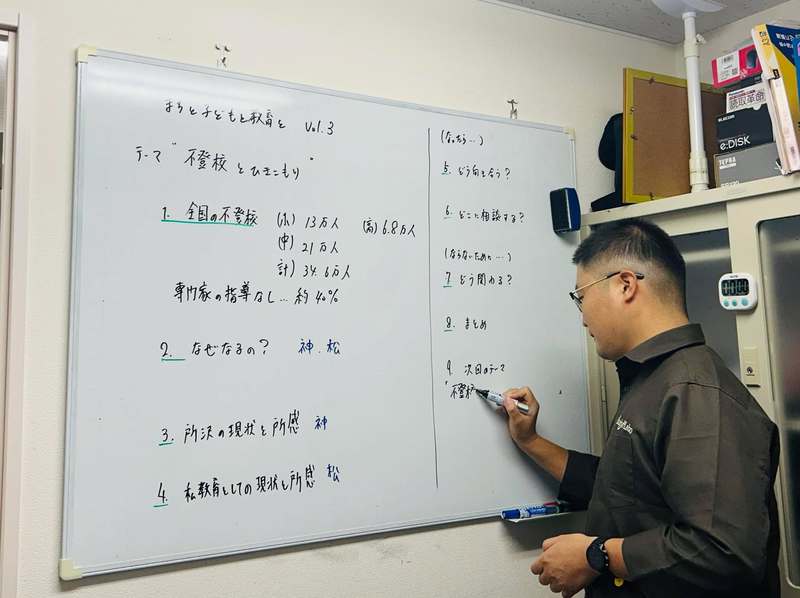 まちと子どもと教育と Vol.3
テーマ "不登校とひきこもり"
1. 全国の不登校 (小) 13万人 (高) 6.8万人
(中) 21万人
計) 34.6万人
専門家の指導なし… 約40%
2. なぜなるの? 神.松
3. 所沢の現状と所感 神
4. 私教育としての現状と所感 松
(なったら…)
5. どう向き合う?
6. どこに相談する?
(ならないために…)
7 どう関わる?
8. まとめ
9. 次回のテーマ
"不登校
読取革命
ELECOM
e:DISK
TEPRA